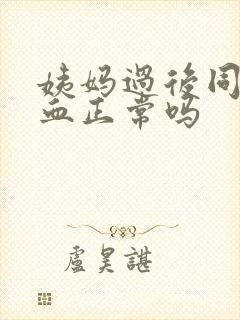 姨妈過後同
血正常吗
盧昊諶